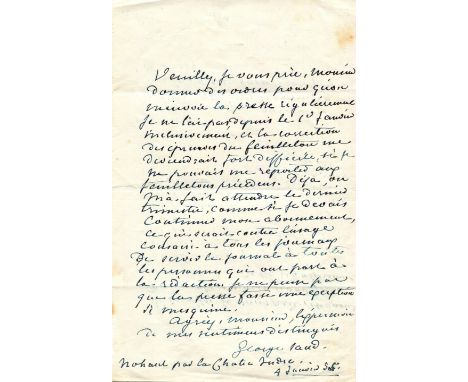 Veuillez, je vous prie, monsieur
donner des ordres pour qu'on
m'envoie la presse régulièrement
je ne l'ai pas depuis le 1er janvier
inclusivement, et la correction
des épreuves du feuilleton me
deviendrait fort difficile, si je
ne pouvais me reporter aux
feuilletons précédens. Déjà, on
m'a fait attendre le dernier
trimestre, comme si je devais
continuer mon abonnement,
ce qui serait contre l'usage
consacré à tous les journaux
de servir le journal à toutes
les personnes qui ont part à
la rédaction. je ne pense pas
que la presse fasse une exception
si mesquine.
Agréez, monsieur, l'expression
de mes sentimens distingués
George Sand.
Nohant par la Châtre Indre.
4 janvier